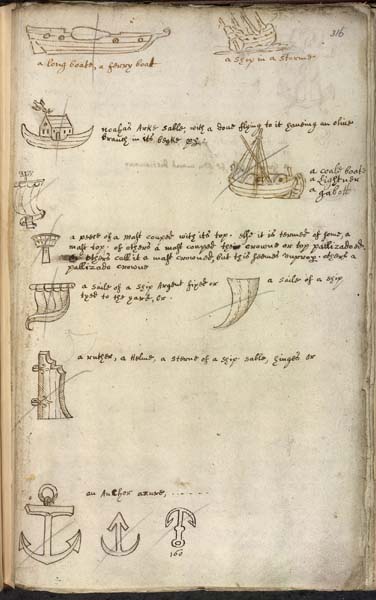 316
a long boate, a ferry boat
a ship in a storme
noahas Arke sable, with a dove flying to it haveing an olive
branch in its beake
a coale boate
a lightner
a gabott
a peece of a mast couped with its top. else it is termed of some, a
mast top. of others a mast couped the crowne or top pallizado ed.
others call it a mast crowned, but this seemes
others a
pallizado crowne
a saile of a ship Argent fixed or
tyed to the yard, or.
a saile of a ship
a ruther, a Helme, a sterne of a ship sable, hinges or
an Anchor azure,
160